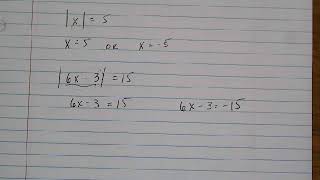 |x| = 5
x = 5 OR x = -5
|6x - 3| = 15
6x - 3 = 15 6x - 3 = -15